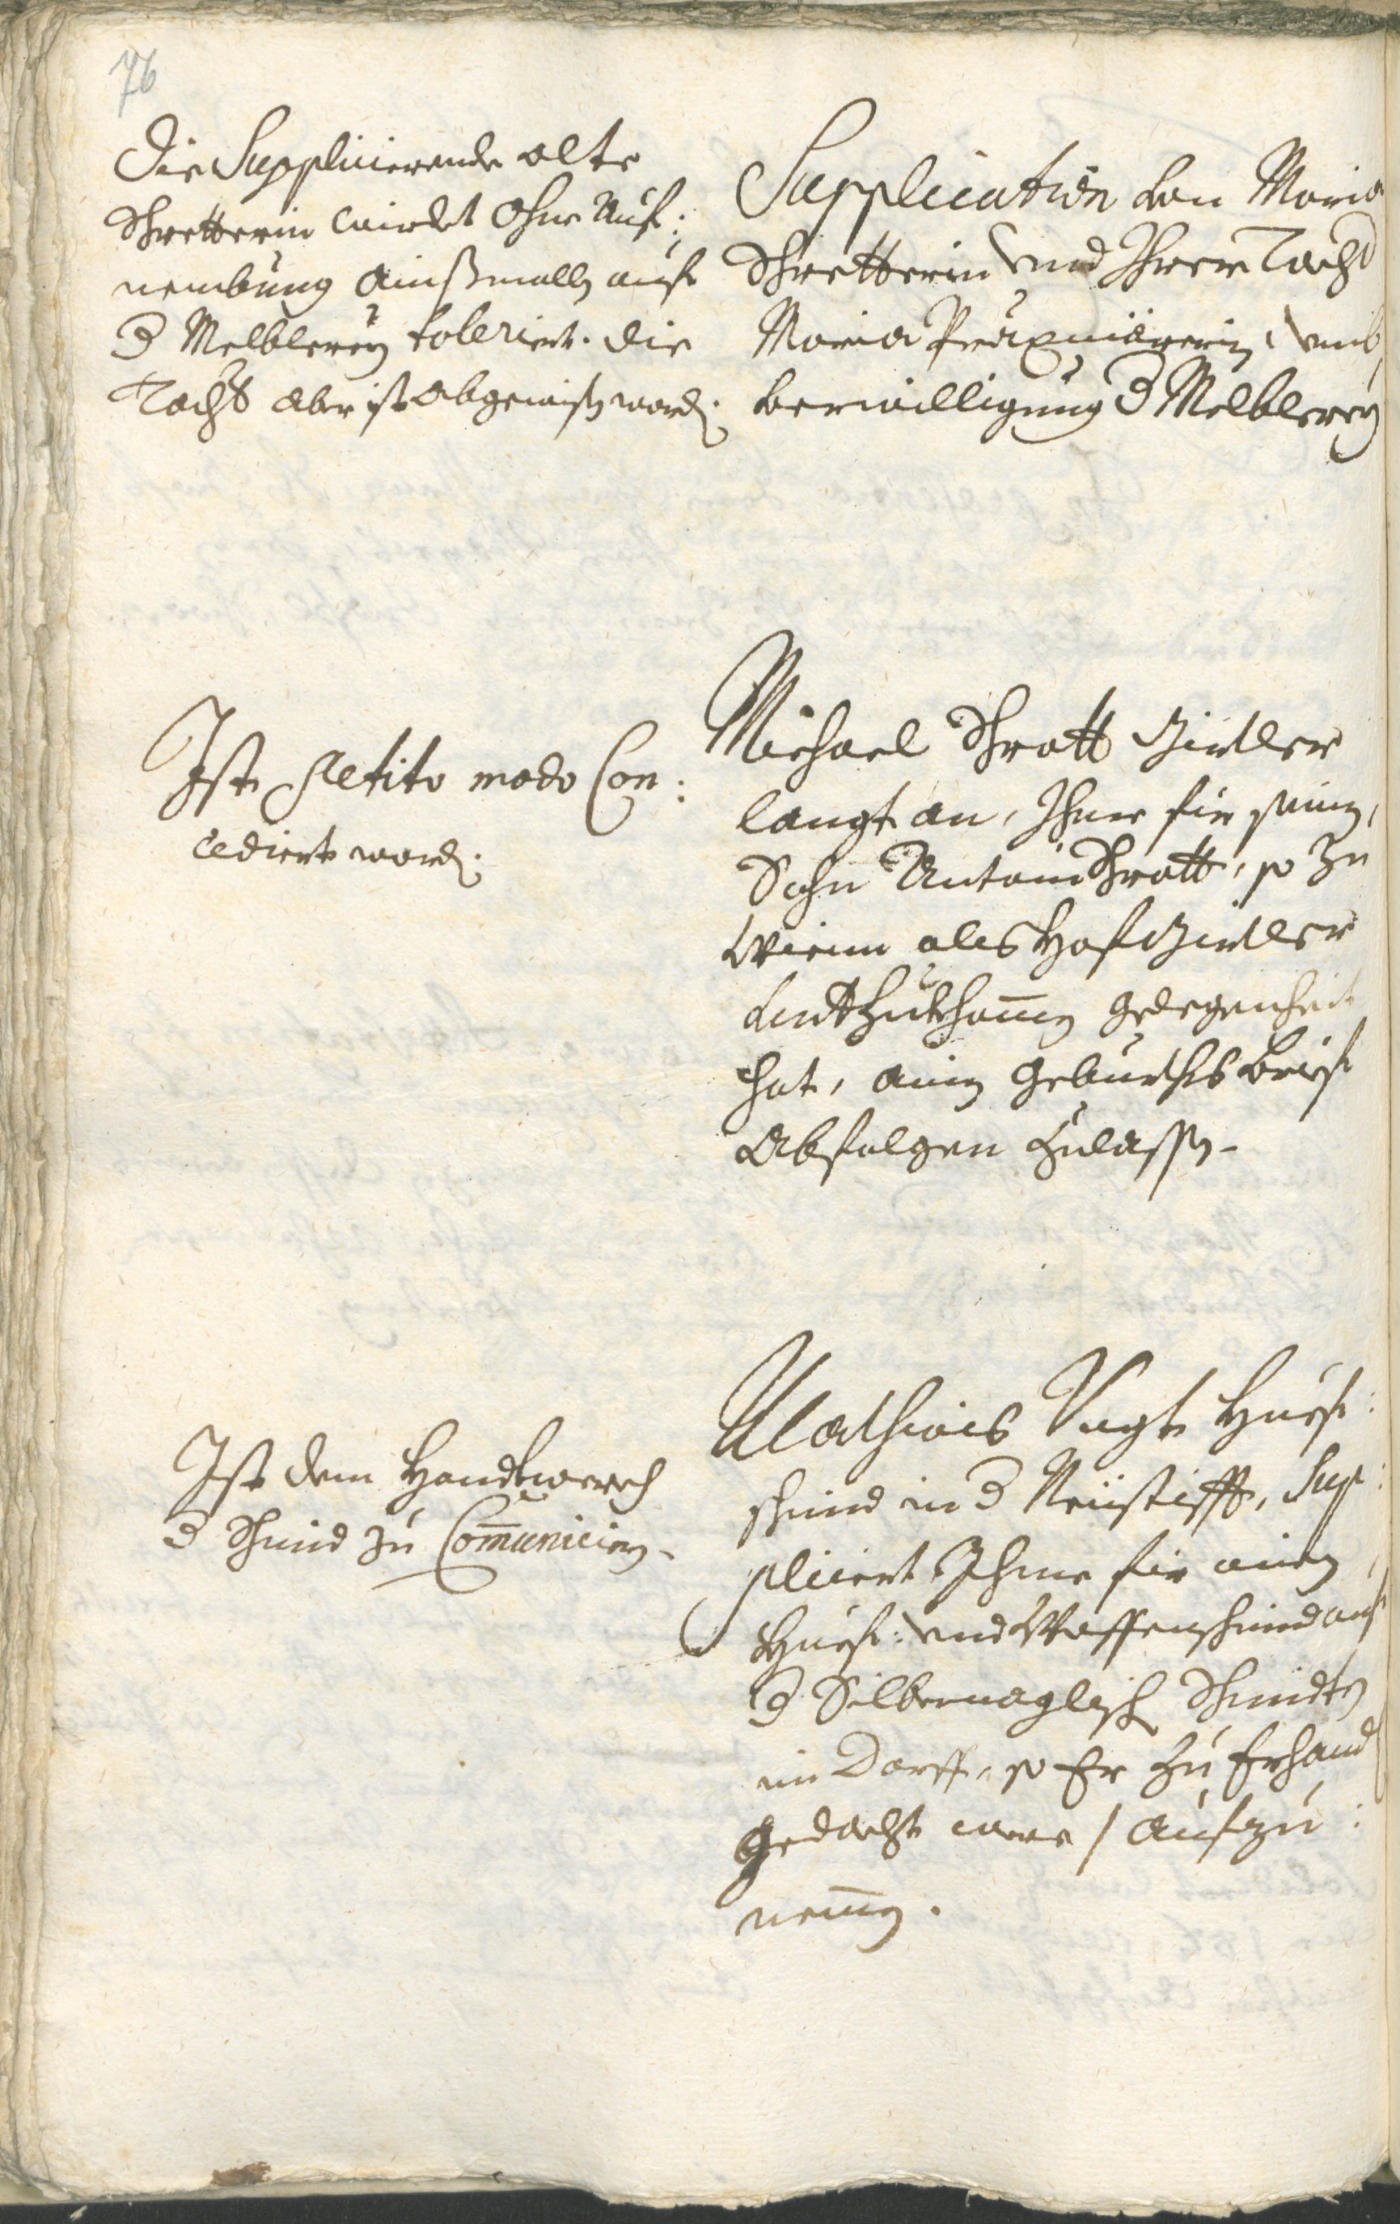 76
Die Supplicierende alte
Schretterin wirdet ohne Auf:
nembung ainßmalls auf
d Melblerey toleriert. die
Tocht aber ist abgewisen word.
Supplication von Maria
Schretterin vnd Ihrer Tocht
Maria, vmb
verwilligung d Melblerey
Ist petito modo Con:
cediert word.
Michael Schrott Girtler
langt an, Ihme fir seinen
Sohn Antoni Schrott, so zu
Wienn als Hof Girtler
vnterzukhomen gelegenheit
hat, ainen geburths brief
Abfolgen zulassen.
Ist dem Handtwerch
d Schmid zu Comunicieren.
Mathias Vogt Huef:
schmid in d Neustifft, Sup:
pliciert Ihme fir ainen
Huef: vnd Waffenschmid auf
d Silbernaglisch Schmidten
im Dorff, so Er zu Erhand
gedacht were / Aufzu:
nemen.